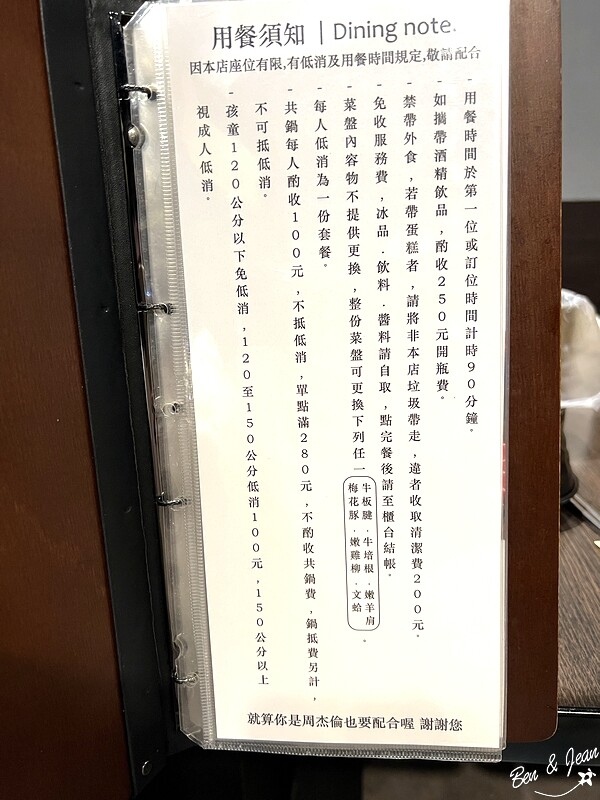 用餐須知 | Dining note.
因本店座位有限,有低消及用餐時間規定,敬請配合
- 用餐時間於第一位或訂位時間計時90分鐘。
- 如攜帶酒精飲品,酌收250元開瓶費。
- 禁帶外食,若帶蛋糕者,請將非本店垃圾帶走,違者收取清潔費200元。
- 免收服務費,冰品.飲料.醬料請自取,點完餐後請至櫃台結帳。
- 菜盤內容物不提供更換,整份菜盤可更換下列任一
牛板腱.牛培根.嫩羊肩
梅花豚.嫩雞柳.文蛤
。
- 每人低消為一份套餐。
- 共鍋每人酌收100元,不抵低消,單點滿280元,不酌收共鍋費,鍋底費另計,
不可抵低消。
- 孩童120公分以下免低消,120至150公分低消100元,150公分以上
視成人低消。
就算你是周杰倫也要配合喔 謝謝您
Ben & Jean